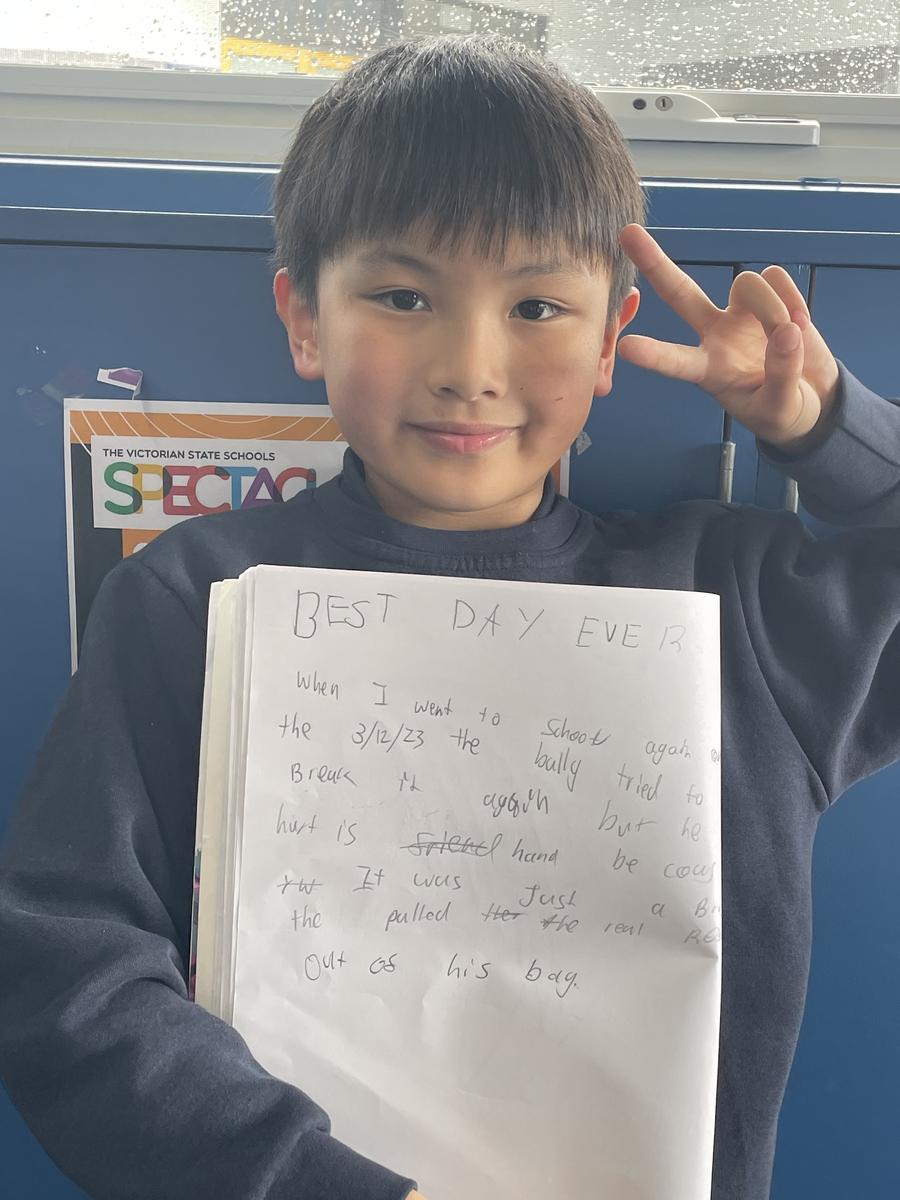 THE VICTORIAN STATE SCHOOLS
SPECTAC
BEST DAY EVER
When I went to School again
the 3/12/23 the bully tried to
Break it again but he
hurt is friend hand be cous
It was Just a
the pulled the real
Out os his bag.